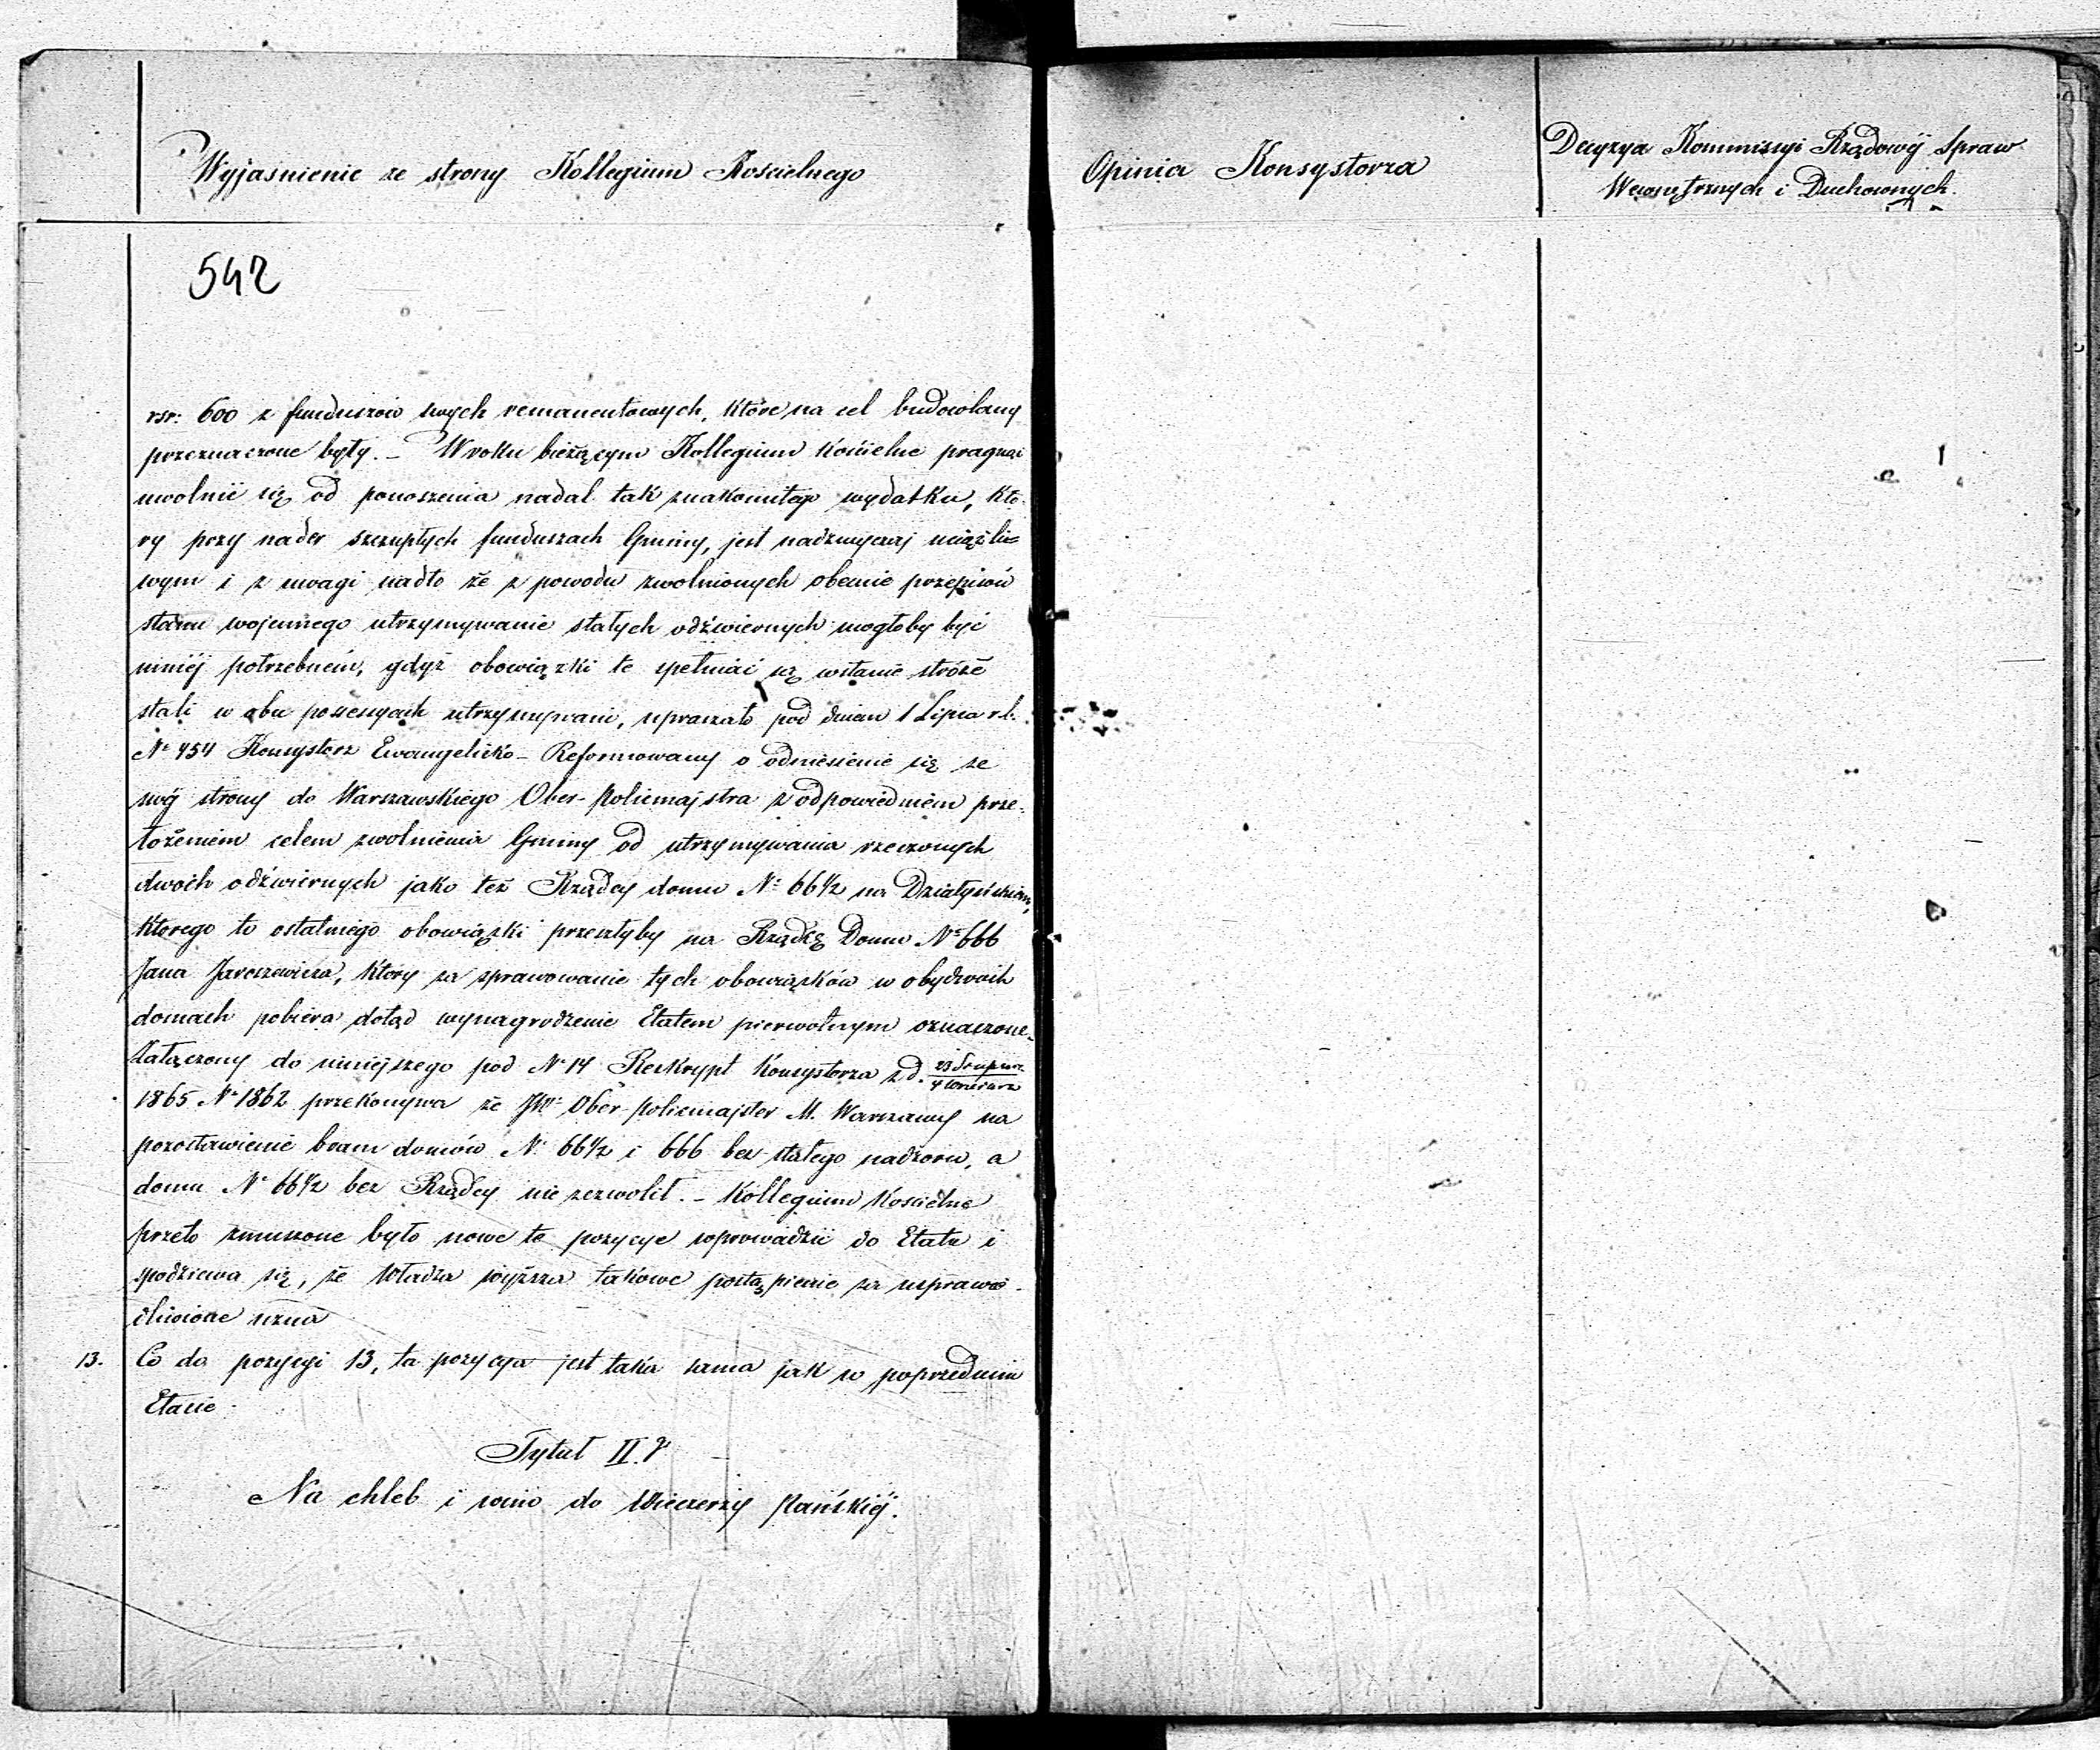 Wyjasnienie ze strony Kollegium Kościelnego
Opinia Konsystorza
Decyzya Kommissyi Rządowéj Spraw
Wewnętrznych i Duchownych.
542
rsr: 600 z funduszów swych remanentowych, które na cel budowlany
przeznaczone były. – W roku bieżącym Kollegium Kościelne pragnąc
uwolnić się od ponoszenia nadal tak znakomitego wydatku, któ-
ry przy nader szczupłych funduszach Gminy, jest nadzwyczaj uciążli=
wym i z uwagi nadto że z powodu zwolnionych obecnie przepisów
stanu wojennego utrzymywanie stałych odźwiernych mogłoby być
mniéj potrzebném, gdyż obowiązki te spełniać są wstanie stróże
stali w obu possesyach utrzymywani, upraszało pod dniem 1 Lipca r.b.
Nº 454 Konsystorz Ewangelicko-Reformowany o odniesienie się ze
swéj strony do Warszawskiego Ober-Policmajstra z odpowiedniem prze-
łożeniem celem zwolnienia Gminy od utrzymywania rzeczonych
dwóch odźwiernych jako też Rządcy domu Nº 66½ na Działyńskiem,
którego to ostatniego obowiązki przeszłyby na Rządcę Domu Nº 666
Jana Jaroszewicza, który za sprawowanie tych obowiązków w obydwóch
domach pobiera dotąd wynagrodzenie Etatem pierwotnym oznaczone.
Załączony do niniejszego pod Nº 14 Reskrypt Konsystorza z d. 23 Sierpnia / 4 Września
1865 Nº 1862 przekonywa że JW. Ober-Policmajster M. Warszawy na
pozostawienie bram domów Nº 66½ i 666 bez stałego nadzoru, a
domu Nº 66½ bez Rządcy nie zezwolił. – Kollegium Kościelne
przeto zmuszone było nowe te pozycye wprowadzić do Etatu i
spodziewa się, że Władza wyższa takowe postąpienie za usprawie-
dliwione uzna
13. Co do pozycyi 13, ta pozycya jest taka sama jak w poprzednim
Etacie
Tytuł II.
Na chleb i wino do Wieczerzy Pańskiéj.